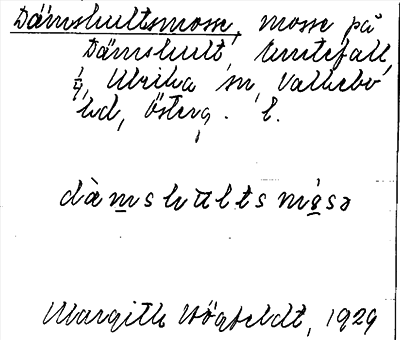 Dämshultsmosse, mosse på
Dämshult,
1/4, Ulrika sn, Valkebo
hd, Österg. l.
dämshultsmåsə
Margith Högfeldt, 1929